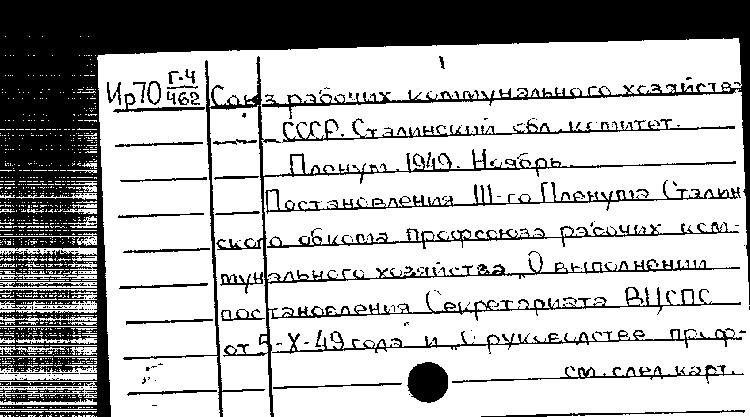 1
Ир70 Г-4/462 Союз рабочих коммунального хозяйства
СССР. Сталинский обл. комитет.
Пленум. 1949. Ноябрь.
Постановления III-го Пленума Сталин-
ского обкома профсоюза рабочих ком-
мунального хозяйства „О выполнении
постановления Секретариата ВЦСПС
от 5-X-49 года" и „О руководстве проф-
см. след. карт.